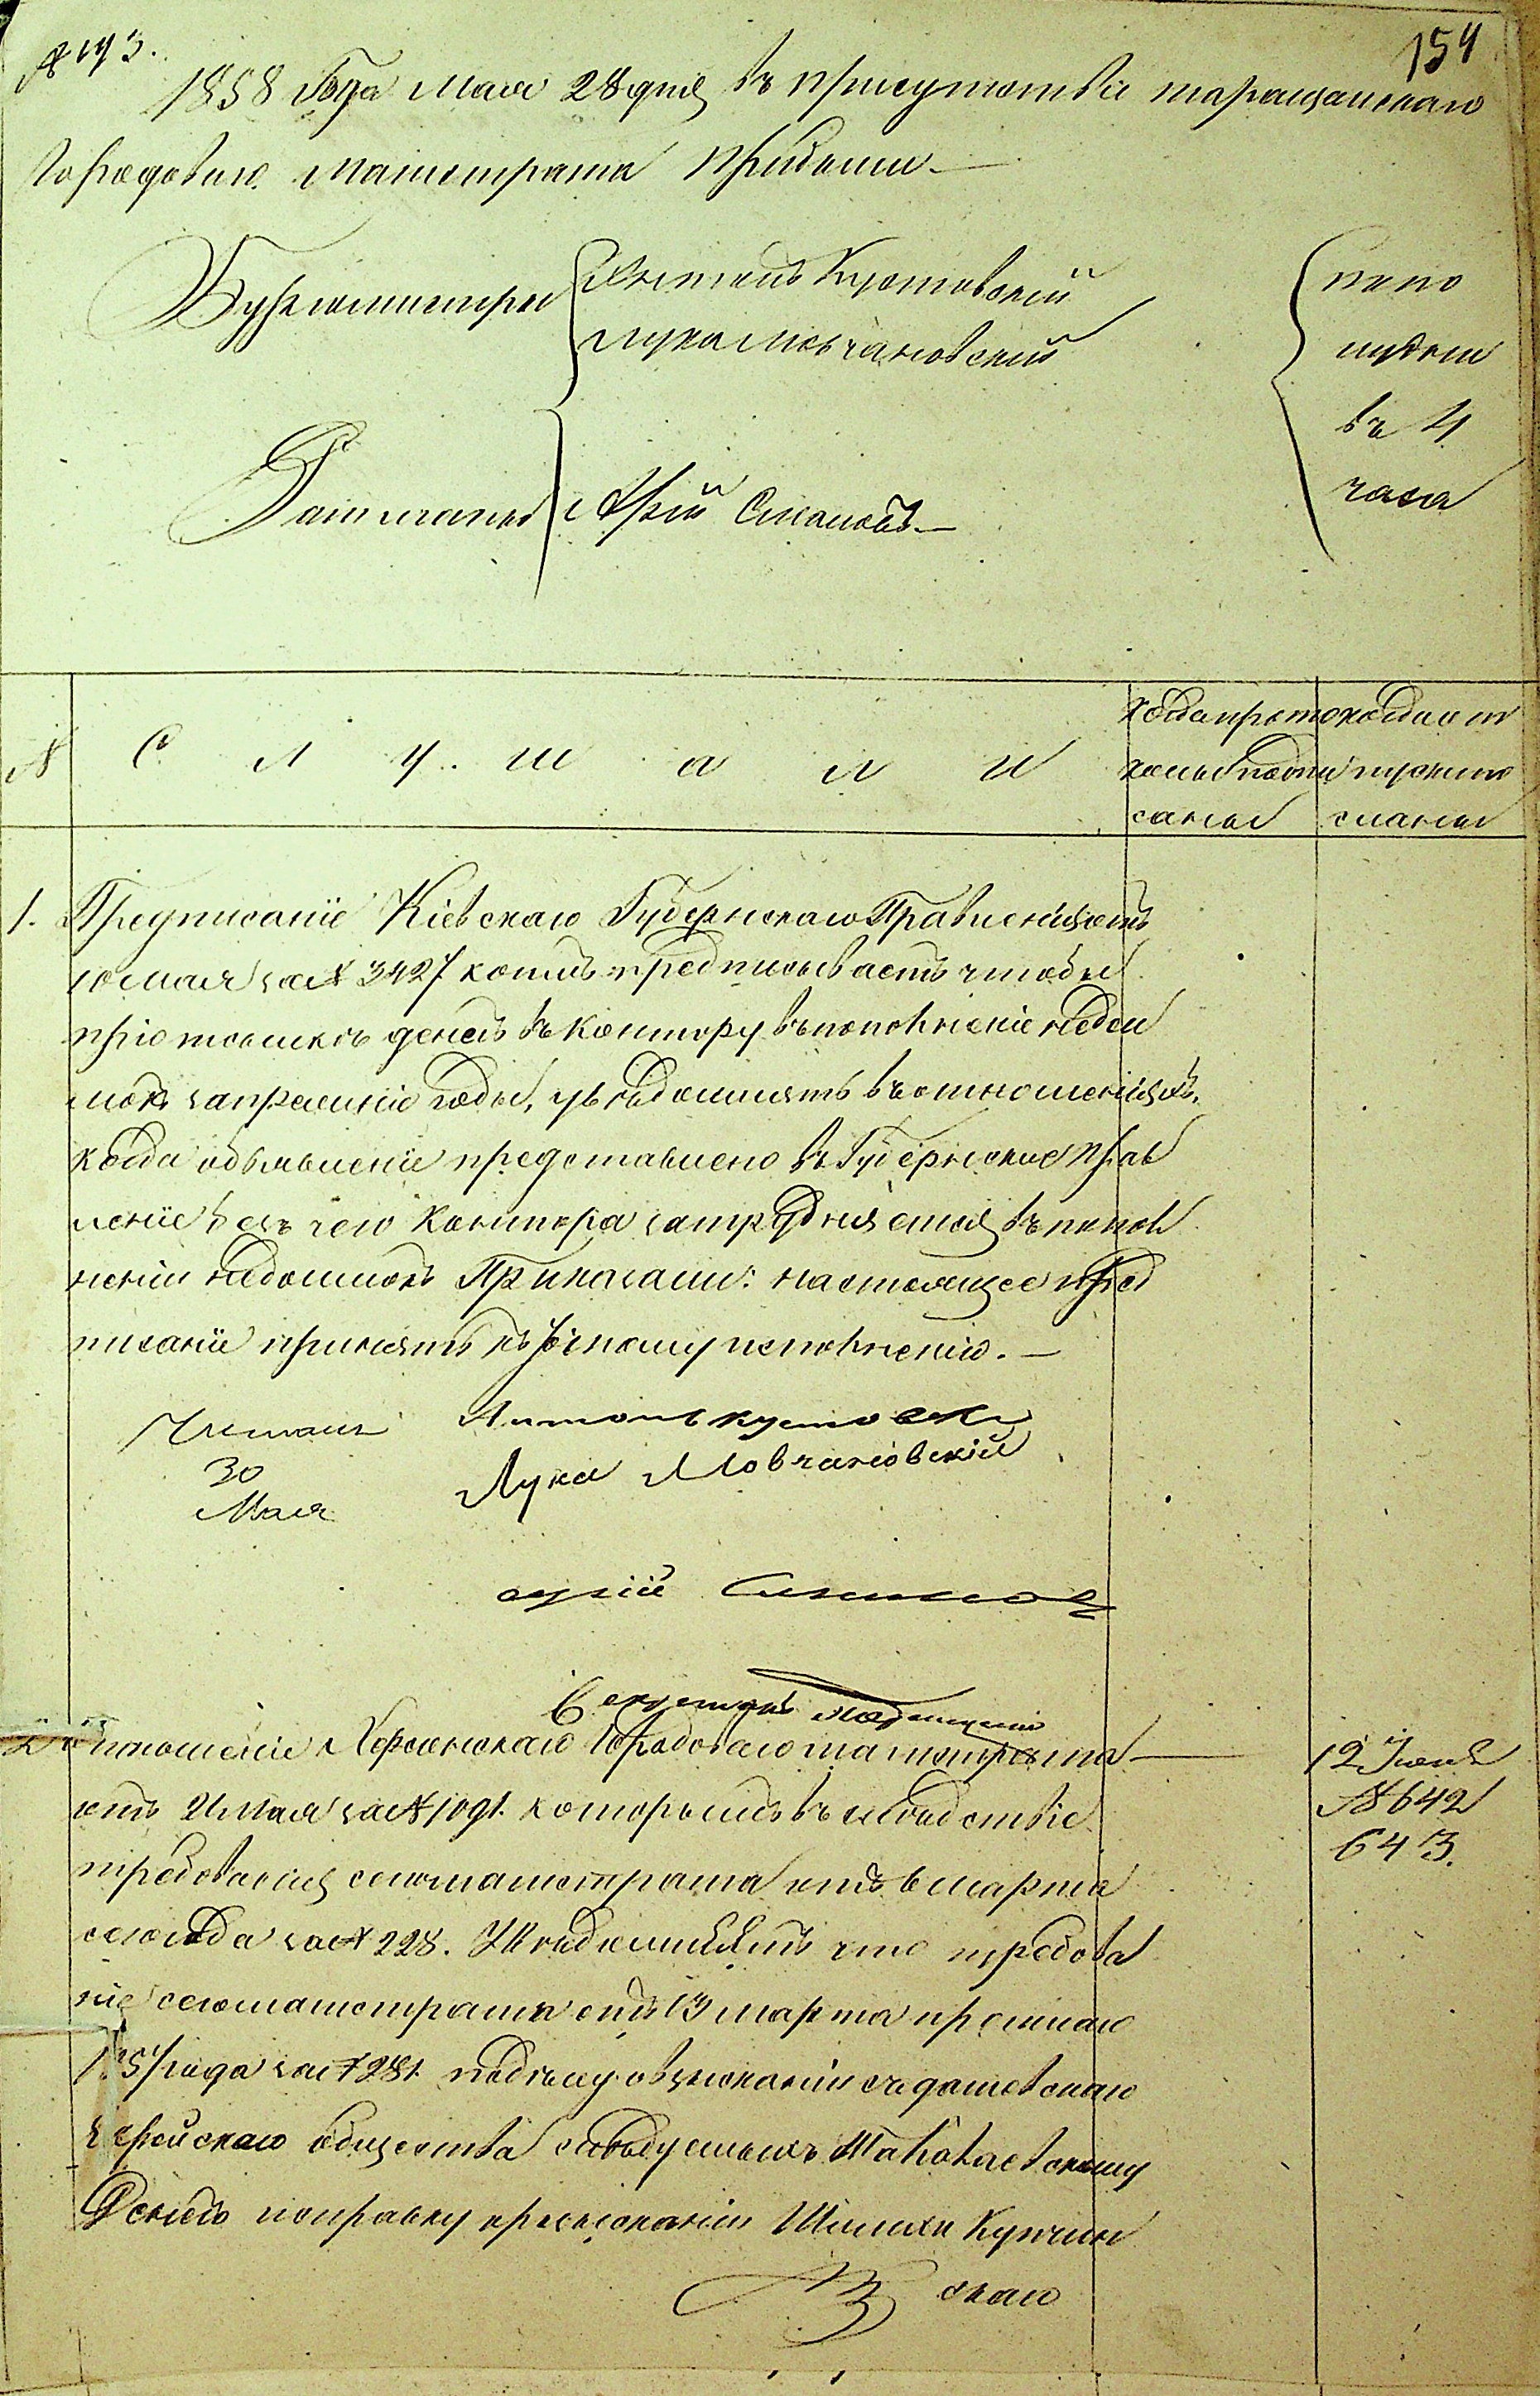 № 193.
154
1858 Года Мая 28 дня въ присутствіи таращанскаго
Городоваго Магистрата прибыли
Бургомистры
Антонъ Кустовскій
Лука Мовчановскій
Ратманъ
Юрій
по по
лудни
въ 4
часа
№ С л у ш а л и
когда прото
колы подпи
саны
когда и от
пуски по
сланы
1. Предписаніе Кіевскаго Губернскаго Правленія отъ
10 мая за № 3427 коимъ предписываетъ чтобы
при денегъ въ Контору въ пополненіе недои
мокъ за прежніе годы, увѣдомлять въ отношеніяхъ,
когда объявленіе представлено въ Губернское прав
леніе безъ чего Контора затрудняется въ попол
неніи недоимокъ Приказали: настоящее пред
писаніе принять къ исполненію.
Читалъ
30
Мая
Антонъ Кустовскі
Лука Мовчановскій
юрій
Секретарь
2. Отношеніе Херсонскаго Городоваго магистрата
отъ 21 мая за № 1091. которымъ въ слѣдствіе
требованія сего магистрата отъ 6 марта
сего года за № 228. Увѣдомляетъ что требова
ніе сего магистрата отъ 13 марта прошлаго
1857 года за № 281. о взысканіи съ дашевскаго
еврейскаго общества слѣдуемыхъ
денегъ Шмилхи Купчин
скаго
12 Іюня
№ 642
643.